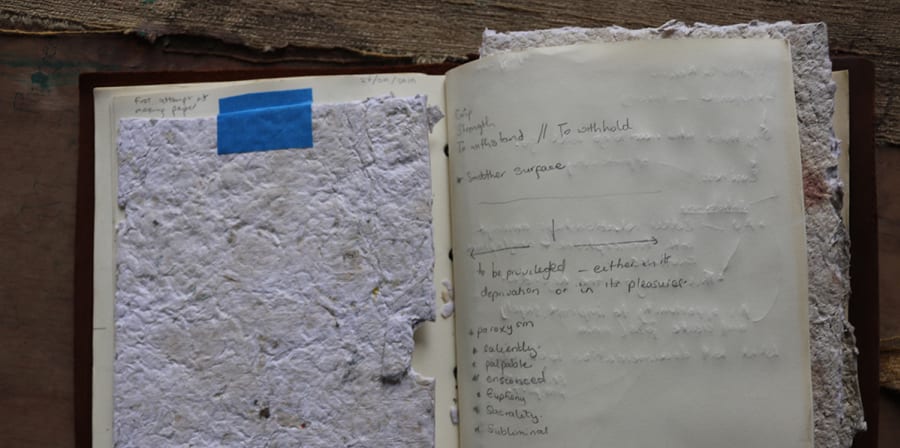 First attempt at
making paper
Grip
Strength
To withstand // To withhold
* Smoother surface
to be privileged – either in it
deprivation or in its pleasures.
* paroxysm
* saliently.
* palpable
* ensconced
* Euphony
* Sacrality.
* Subliminal